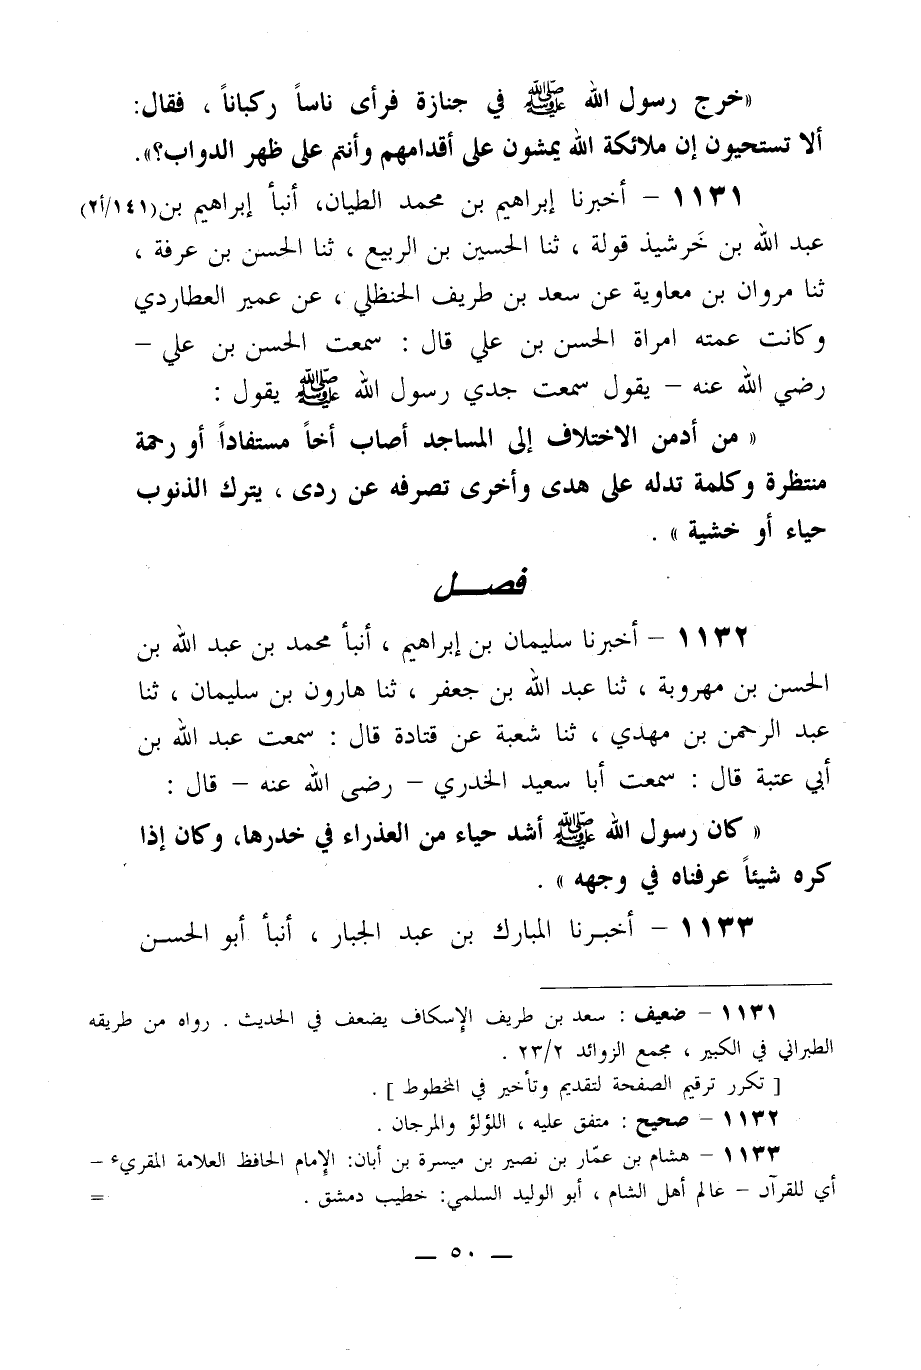 «خرج رسول الله ﷺ في جنازة فرأى ناساً ركباناً ، فقال:
ألا تستحيون إن ملائكة الله يمشون على أقدامهم وأنتم على ظهر الدواب؟».
١١٣١ – أخبرنا إبراهيم بن محمد الطيان، أنبأ إبراهيم بن (١٤١/أ٢)
عبد الله بن خَرشيذ قولة ، ثنا الحسين بن الربيع ، ثنا الحسن بن عرفة ،
ثنا مروان بن معاوية عن سعد بن طريف الحنظلي ، عن عمير العطاردي
وكانت عمته امراة الحسن بن علي قال : سمعت الحسن بن علي –
رضي الله عنه – يقول سمعت جدي رسول الله ﷺ يقول :
« من أدمن الاختلاف إلى المساجد أصاب أخاً مستفاداً أو رحمة
منتظرة وكلمة تدله على هدى وأخرى تصرفه عن ردى ، يترك الذنوب
حياء أو خشية » .
فصــل
١١٣٢ – أخبرنا سليمان بن إبراهيم ، أنبأ محمد بن عبد الله بن
الحسن بن مهروبة ، ثنا عبد الله بن جعفر ، ثنا هارون بن سليمان ، ثنا
عبد الرحمن بن مهدي ، ثنا شعبة عن قتادة قال : سمعت عبد الله بن
أبي عتبة قال : سمعت أبا سعيد الخدري – رضى الله عنه – قال :
« كان رسول الله ﷺ أشد حياء من العذراء في خدرها، وكان إذا
كره شيئاً عرفناه في وجهه » .
١١٣٣ – أخبرنا المبارك بن عبد الجبار ، أنبأ أبو الحسن
١١٣١ – ضعيف : سعد بن طريف الإسكاف يضعف في الحديث . رواه من طريقه
الطبراني في الكبير ، مجمع الزوائد ٢٣/٢ .
[ تكرر ترقيم الصفحة لتقديم وتأخير في المخطوط ] .
١١٣٢ – صحيح : متفق عليه ، اللؤلؤ والمرجان .
١١٣٣ – هشام بن عمّار بن نصير بن ميسرة بن أبان: الإمام الحافظ العلامة المقريء –
أي للقرآن – عالم أهل الشام ، أبو الوليد السلمي: خطيب دمشق . =
— ٥٠ —